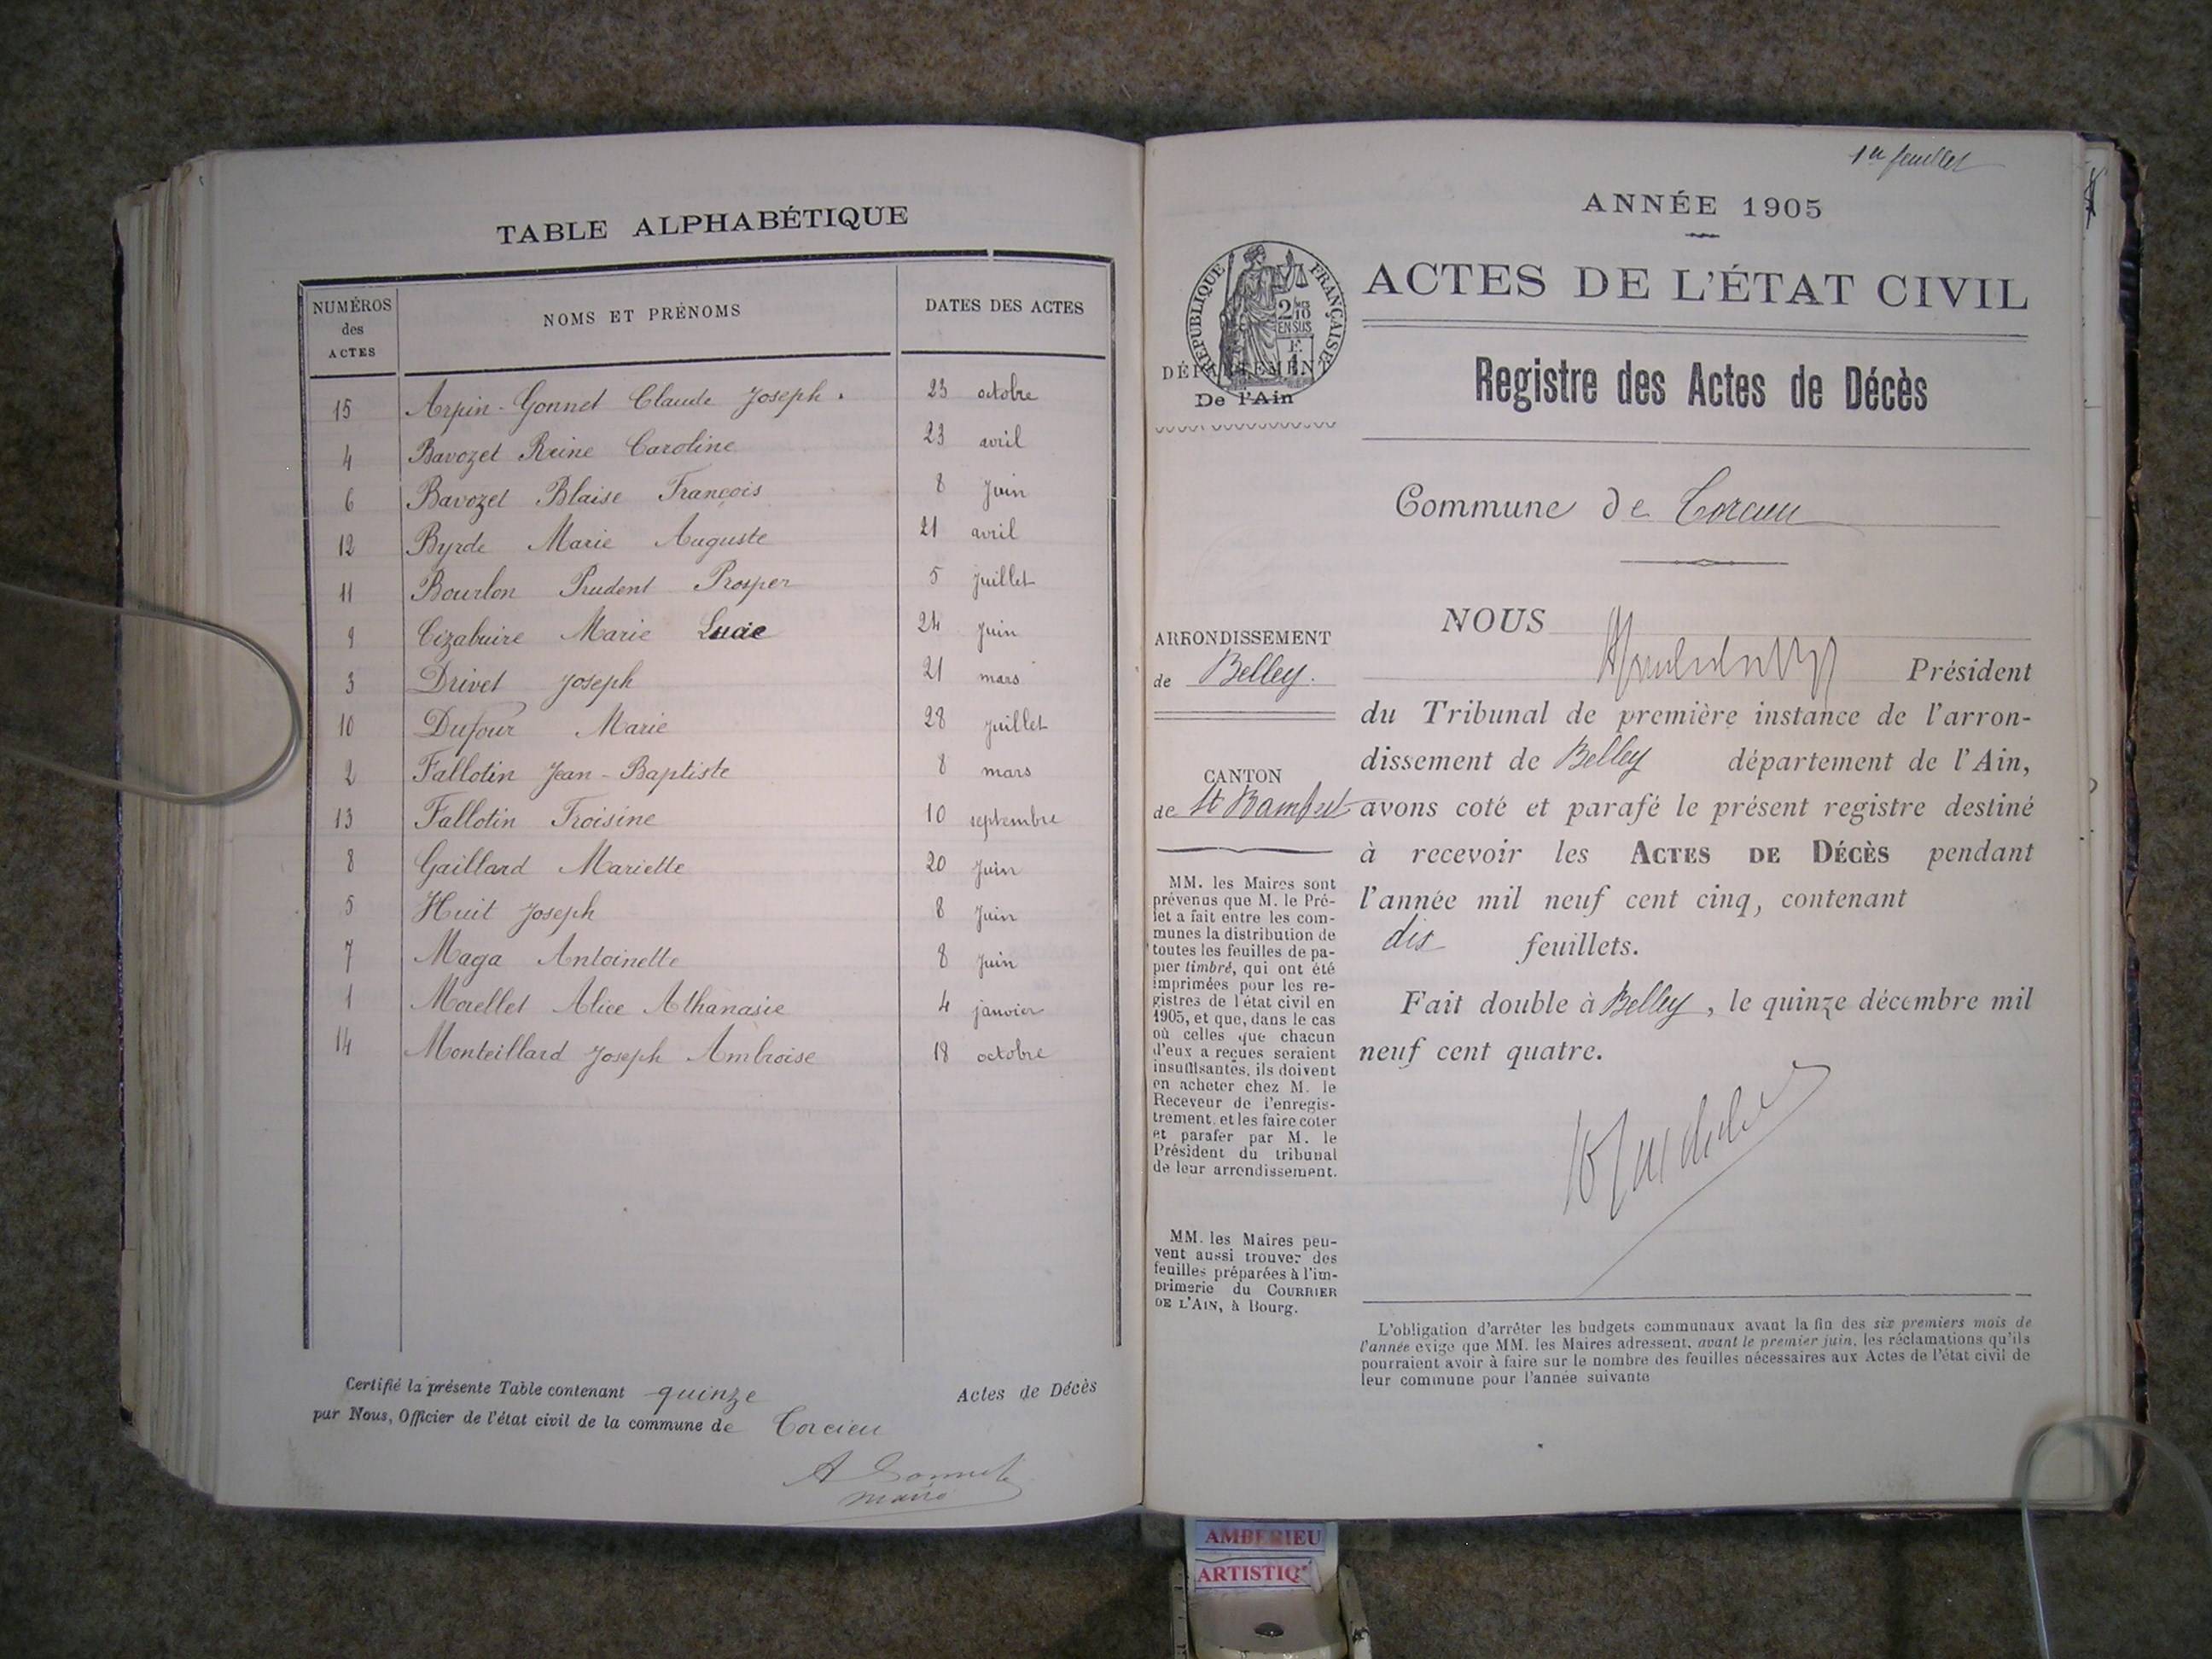 TABLE ALPHABÉTIQUE
NUMÉROS des ACTES NOMS ET PRÉNOMS DATES DES ACTES
15 Arpin-Gonnet Claude Joseph. 23 octobre
4 Bavozet Reine Caroline 23 avril
6 Bavozet Blaise François 8 Juin
12 Byrde Marie Auguste 21 avril
11 Bourlon Prudent Prosper 5 Juillet
9 Cizabuire Marie Lucie 24 Juin
3 Drivet Joseph 21 mars
10 Dufour Marie 28 Juillet
2 Fallotin Jean-Baptiste 8 mars
13 Fallotin Froisine 10 septembre
8 Gaillard Mariette 20 Juin
5 Huit Joseph 8 Juin
7 Maga Antoinette 8 Juin
1 Morellet Alice Athanasie 4 janvier
14 Monteillard Joseph Ambroise 18 octobre
Certifié la présente Table contenant quinze Actes de Décès
par Nous, Officier de l'état civil de la commune de Torcieu
A Bonnet
maire
1er feuillet
ANNÉE 1905
ACTES DE L'ÉTAT CIVIL
RÉPUBLIQUE FRANÇAISE
2 10
EN SUS
DÉPARTEMENT
De l'Ain
Registre des Actes de Décès
Commune de Torcieu
ARRONDISSEMENT
de Belley.
CANTON
de St Rambert
MM. les Maires sont
prévenus que M. le Pré-
fet a fait entre les com-
munes la distribution de
toutes les feuilles de pa-
pier timbré, qui ont été
imprimées pour les re-
gistres de l'état civil en
1905, et que, dans le cas
où celles que chacun
d'eux a reçues seraient
insuffisantes, ils doivent
en acheter chez M. le
Receveur de l'enregis-
trement, et les faire coter
et parafer par M. le
Président du tribunal
de leur arrondissement.
MM. les Maires peu-
vent aussi trouver des
feuilles préparées à l'im-
primerie du COURRIER
DE L'AIN, à Bourg.
NOUS
Président
du Tribunal de première instance de l'arron-
dissement de Belley département de l'Ain,
avons coté et parafé le présent registre destiné
à recevoir les ACTES DE DÉCÈS pendant
l'année mil neuf cent cinq, contenant
dix feuillets.
Fait double à Belley, le quinze décembre mil
neuf cent quatre.
L'obligation d'arrêter les budgets communaux avant la fin des six premiers mois de
l'année exige que MM. les Maires adressent, avant le premier juin, les réclamations qu'ils
pourraient avoir à faire sur le nombre des feuilles nécessaires aux Actes de l'état civil de
leur commune pour l'année suivante
AMBERIEU
ARTISTIQ